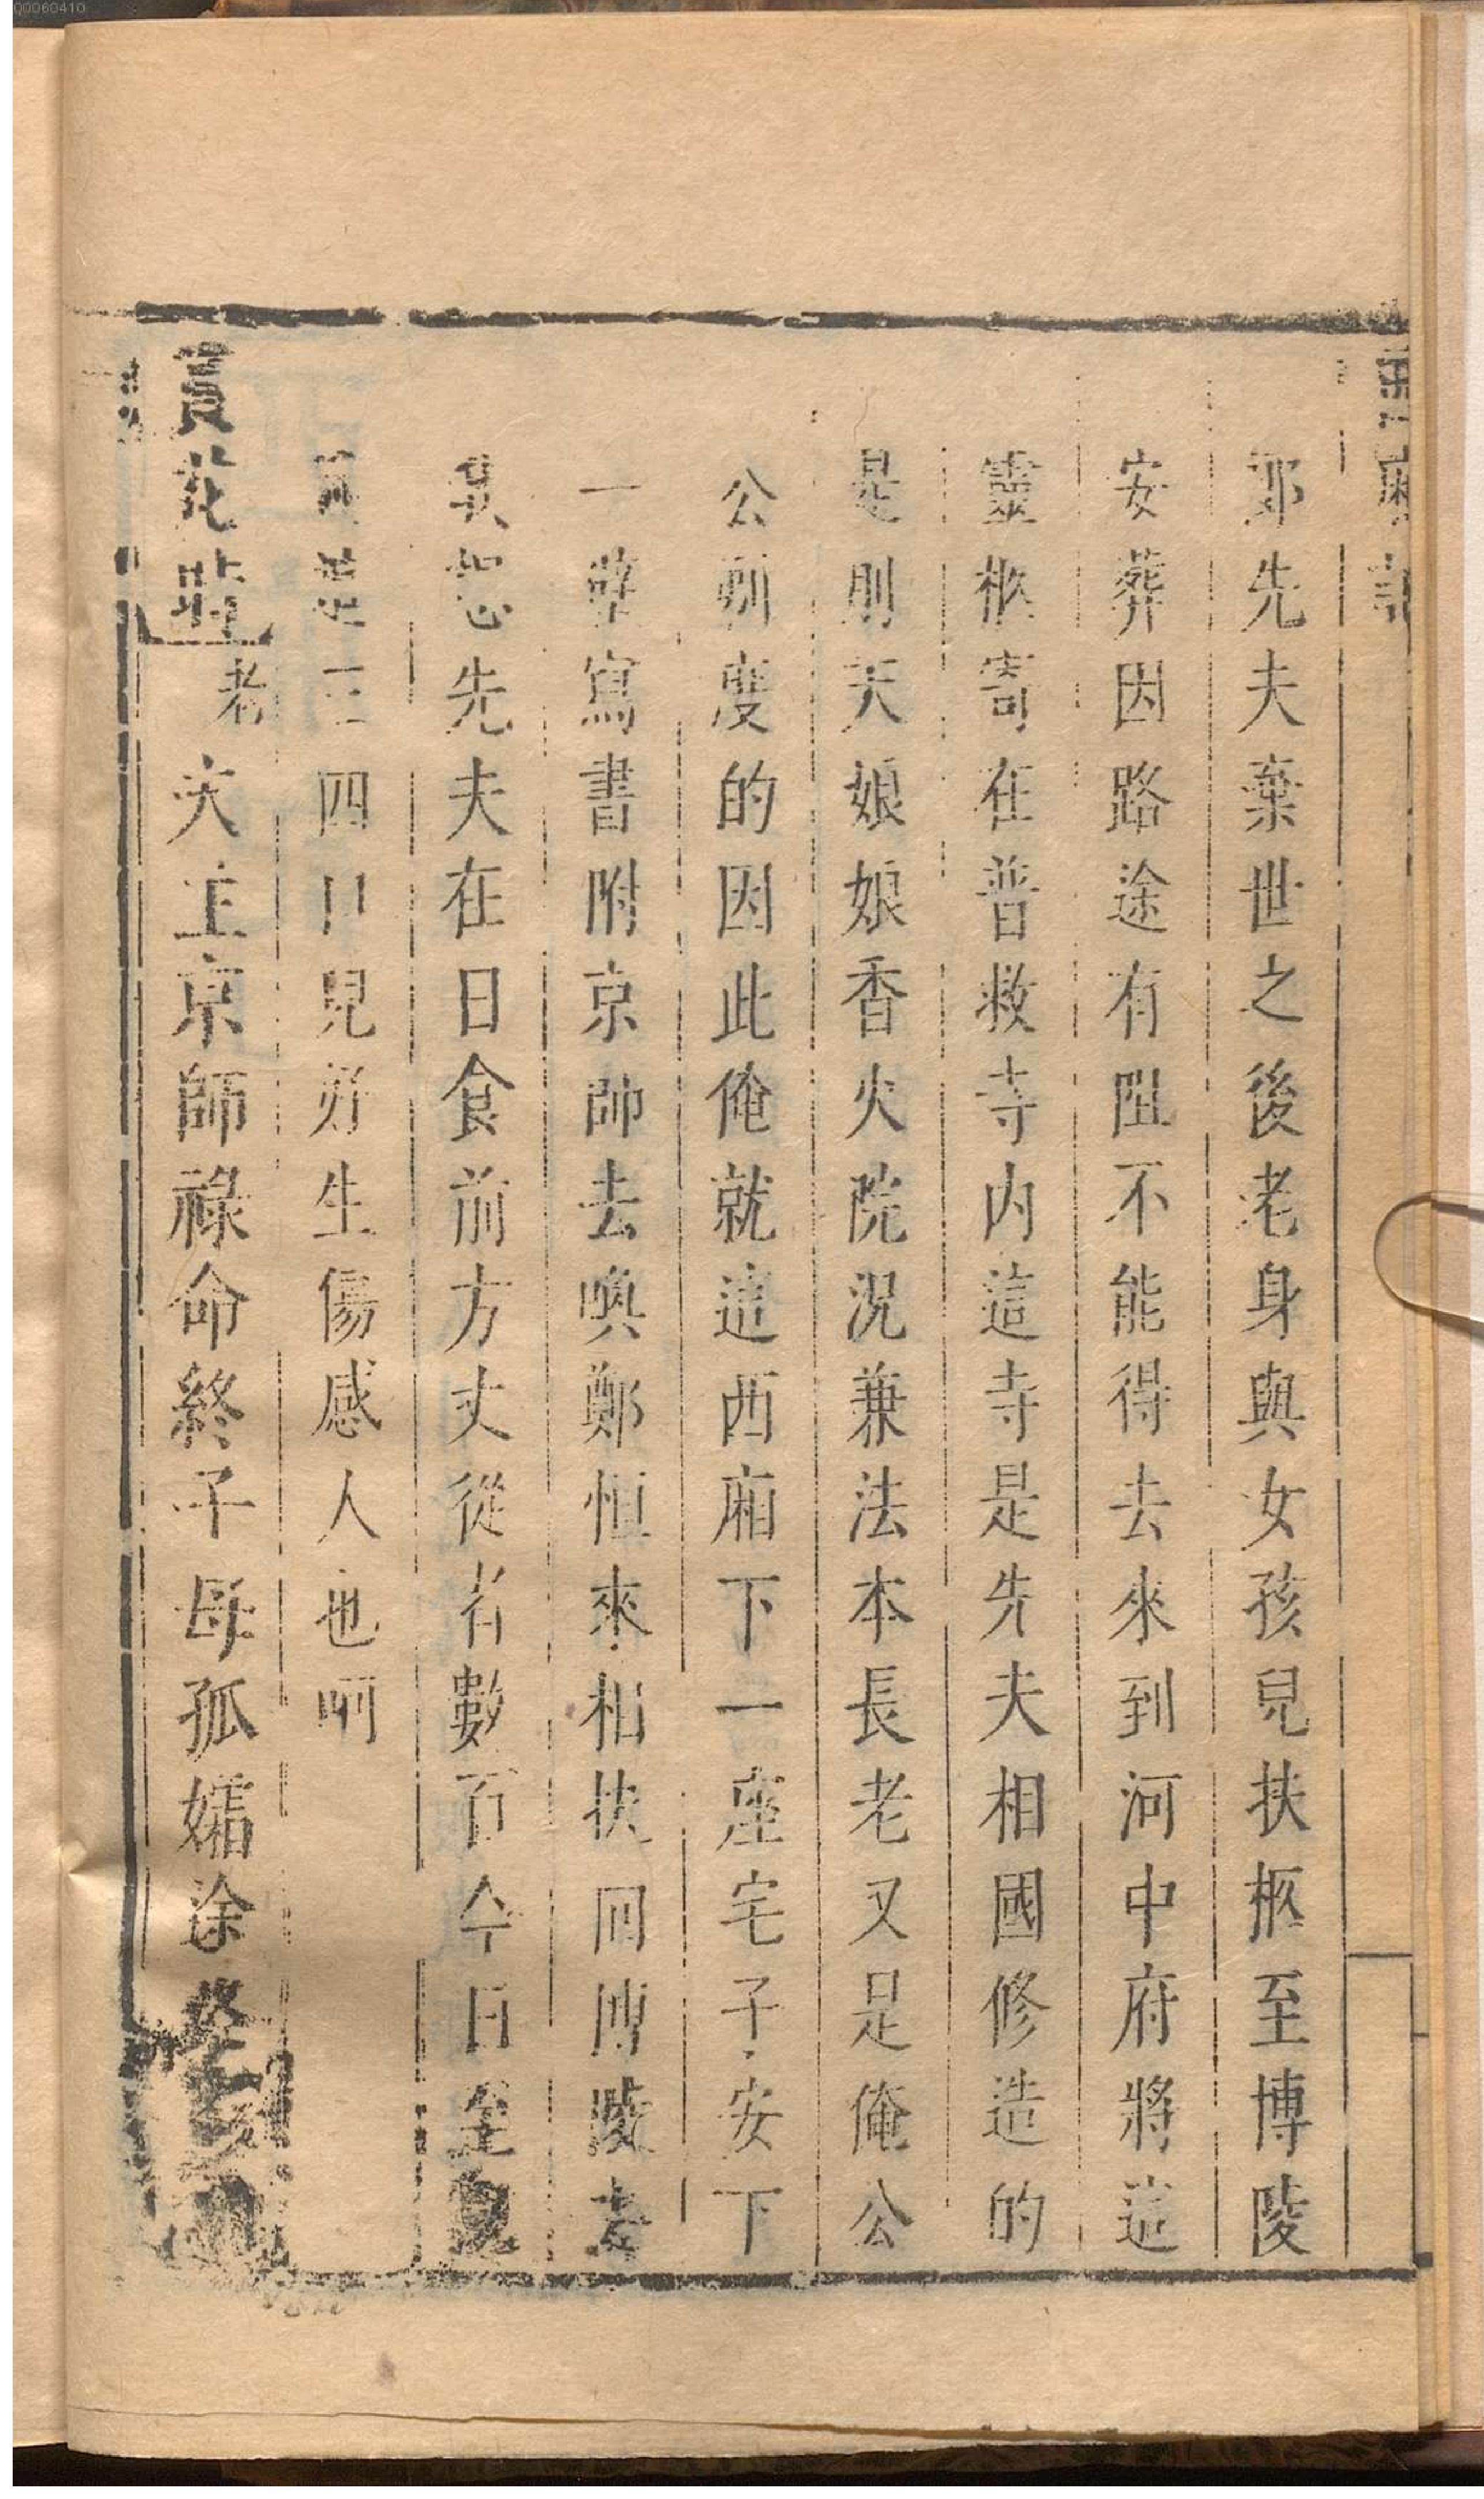 Q0060410
西廂記
那先夫棄世之後老身與女孩兒扶柩至博陵
安葬因路途有阻不能得去來到河中府將這
靈柩寄在普救寺内這寺是先夫相國修造的
是則天娘娘香火院況兼法本長老又是俺公
公剃度的因此俺就這西廂下一座宅子安下
一壁寫書附京師去喚鄭恒來相扶回博陵去
我想先夫在日食前方丈從者數百今日至親
則是三四口兒好生傷感人也呵
賞花時
老
夫主京師祿命終子母孤孀途